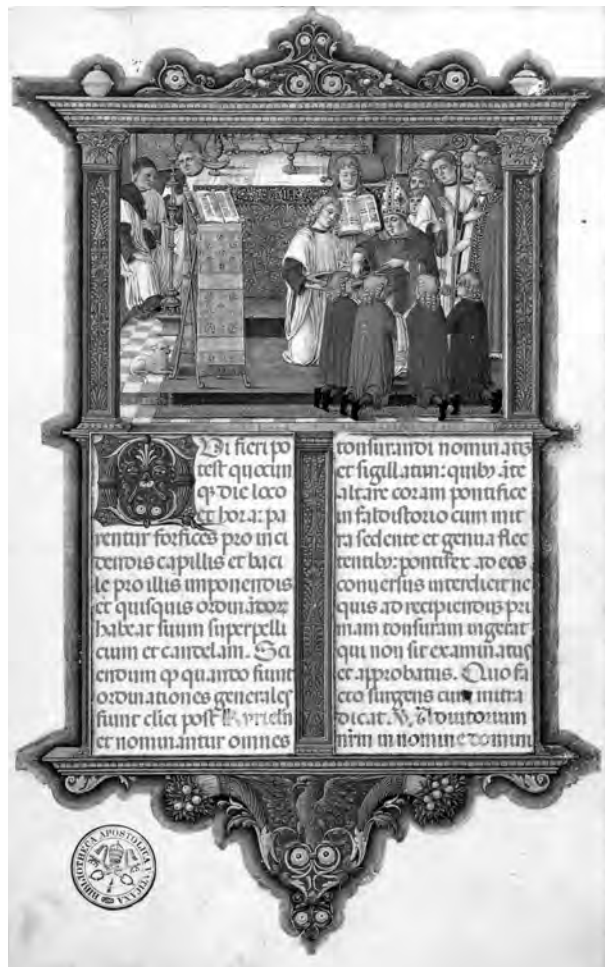 Vi fieri po
test quocun
q; die loco
et hora: pa
rentur forfices pro inci
dendis capillis et baci
le pro illis imponendis
et quisquis ordinādor
habeat suum superpelli
cium et candelam. Sci
endum ꝙ quando fiunt
ordinationes generales
fiunt clici post Kyrieln
et nominantur omnes
tonsurandi nominatī
et sigillatim: quibꝰ āte
altare coram pontifice
in faldistorio cum mit
ra sedente et genua flec
tentibꝰ: pontifex ad eos
conuersus interdicit ne
quis ad recipiendū pri
mam tonsuram ingerat
qui non sit examinatus
et approbatus. Quo fa
cto surgens cum mitra
dicat. ℣. Adiutorium
nr̄m in nomine domini
BIBLIOTHECA APOSTOLICA VATICANA